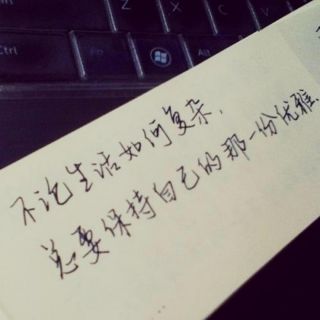 Z
Ctrl
Fn
Alt
不论生活如何复杂,
总要保持自己的那一份优雅.